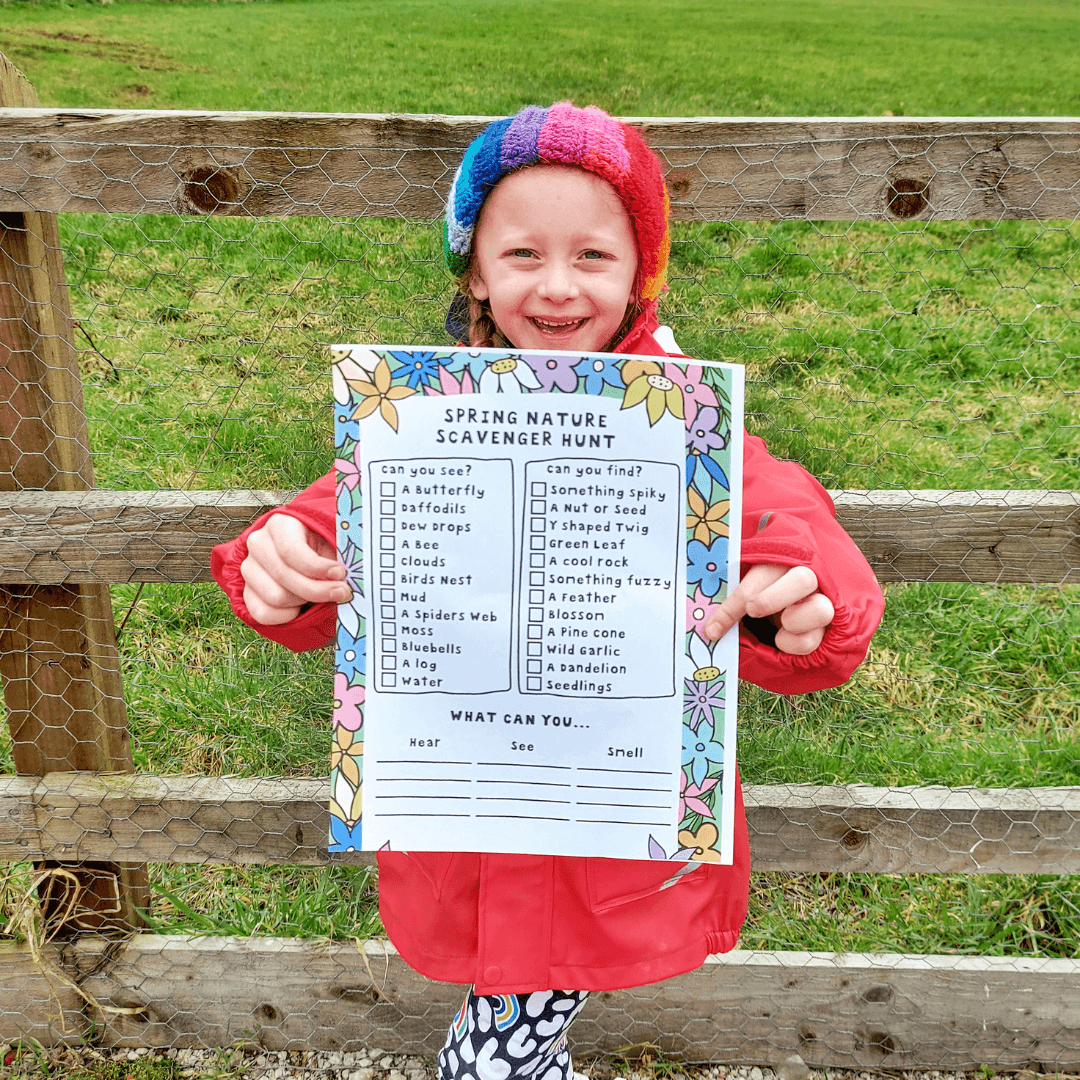 SPRING NATURE
SCAVENGER HUNT
can you see?
A Butterfly
Daffodils
Dew Drops
A Bee
Clouds
Birds Nest
Mud
A Spiders Web
Moss
Bluebells
A log
Water
can you find?
Something Spiky
A Nut or Seed
Y shaped Twig
Green Leaf
A cool rock
Something fuzzy
A Feather
Blossom
A Pine cone
Wild Garlic
A Dandelion
Seedlings
WHAT CAN YOU...
Hear See Smell